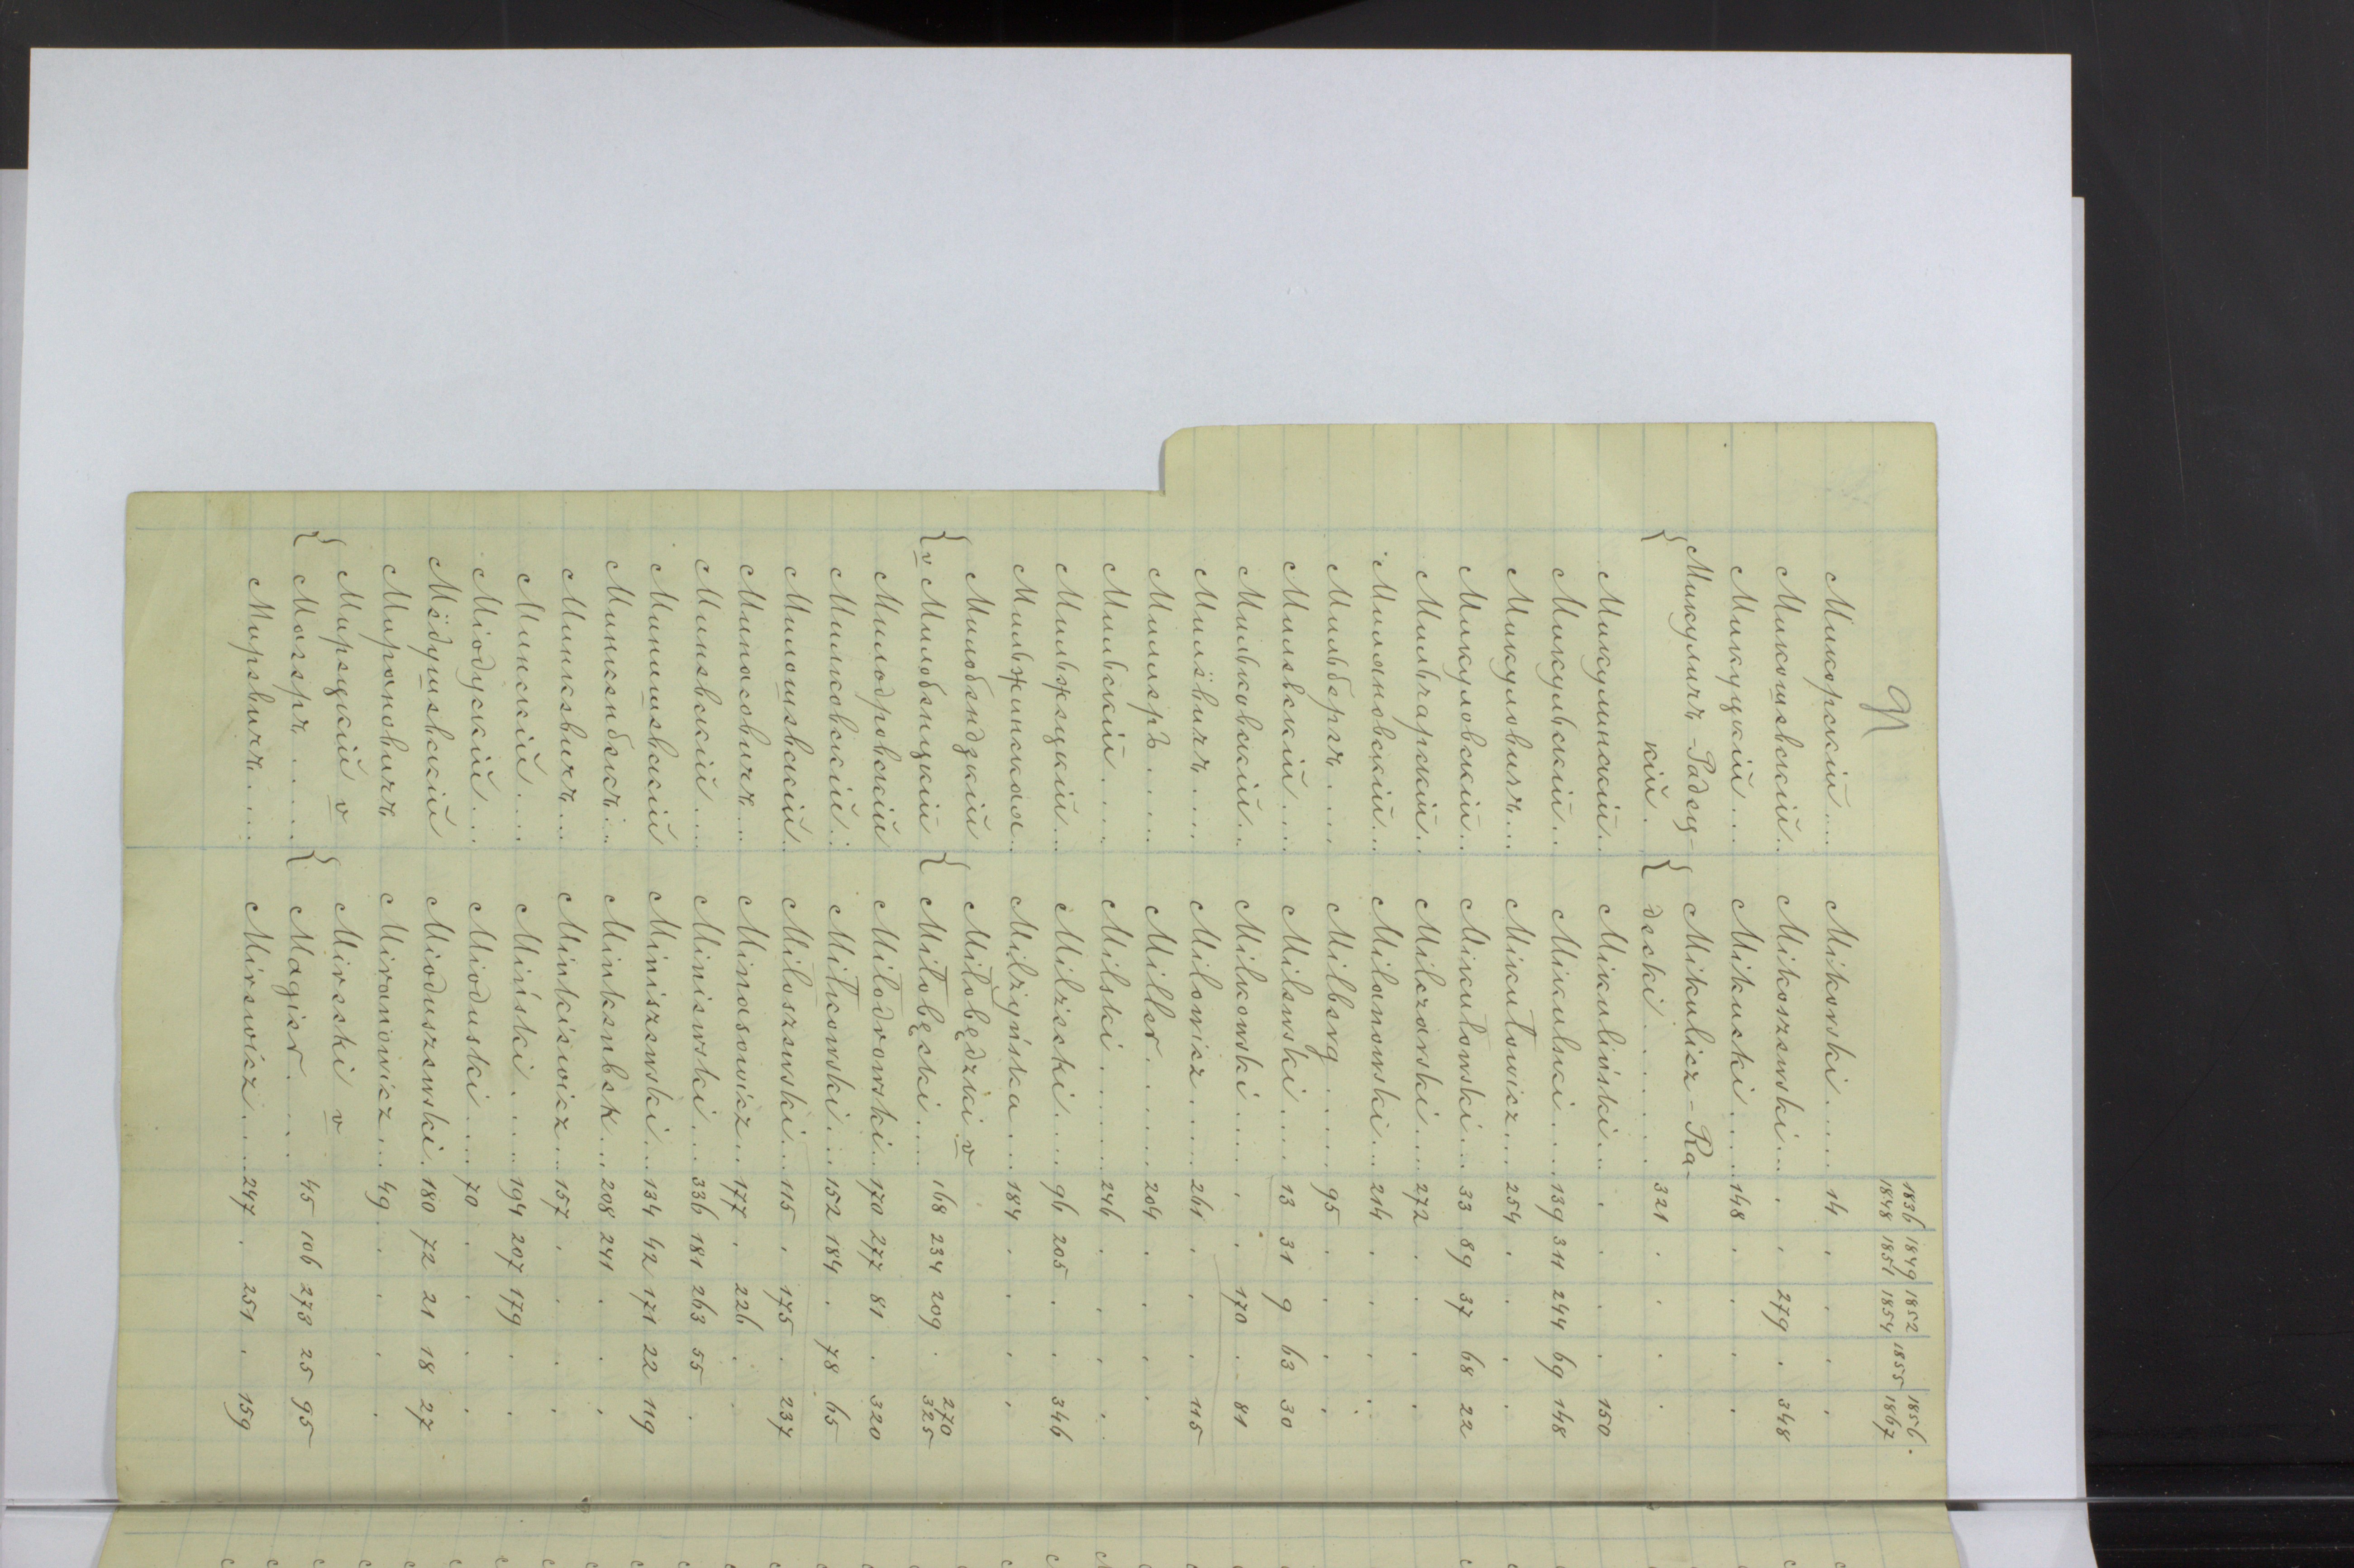 9
1836 1849 1852 1855 1856.
1848 1851 1854 1867
Микорскій.... Mikorski..... 14 . . . .
Микошевскій.. Mikoszewski... . . 279 . 348
Микуцкій... Mikucki.... 148 . . . .
{ Микуличъ-Радец- { Mikulicz-Ra-
кій. decki...... 321 . . . .
Микулинскій.. Mikuliński... . . . . 150
Микульскій.. Mikulski.... 139 311 244 69 148
Микуловичъ... Mikułowicz... 254 . . . .
Микуловскій.. Mikułowski... 33 89 37 68 22
Мильчарскій.. Milczarski... 272 . . . .
Милановскій... Milanowski... 214 . . . .
Мильбергъ.... Milberg..... 95 . . . .
Милевскій.... Milewski.... 13 31 9 63 30
Мильковскій.. Milkowski.... . . 170 . 81
Милёвичъ.... Milowicz.... 261 . . . 115
Миллеръ.... Miller..... 204 . . . .
Мильскій.... Milski...... 246 . . . .
Мильжецкій... Milżecki.... 96 205 . . 346
Мильжинская.. Milżyńska.... 184 . . . .
{ Милобендзкій { Miłobędzki v
v Милобенцкій Miłobęcki.... 168 234 209 . 270 325
Милодровскій Miłodrowski.. 170 277 81 . 320
Милковскій.. Miłkowski... 152 184 . 78 65
Милошевскій.. Miłoszewski... 115 . 175 . 237
Минасовичъ... Minasowicz... 177 . 226 . .
Миневскій.... Miniewski... 336 181 263 55 .
Минишевскій Miniszewski... 134 42 171 22 119
Минкенбекъ... Minkenbek... 208 241 . . .
Минкевичъ... Minkiewicz... 157 . . . .
Минскій.... Miński..... 194 207 179 . .
Міодускій... Mioduski.... 70 . . . .
Мёдушевскій Mioduszewski. 180 72 21 18 27
Мирановичъ Miranowicz... 49 . . . .
{ Мирецкій v { Mirecki v
Магеръ..... Magier..... 45 106 273 25 95
Миревичъ.... Mirewicz.... 247 . 251 . 159